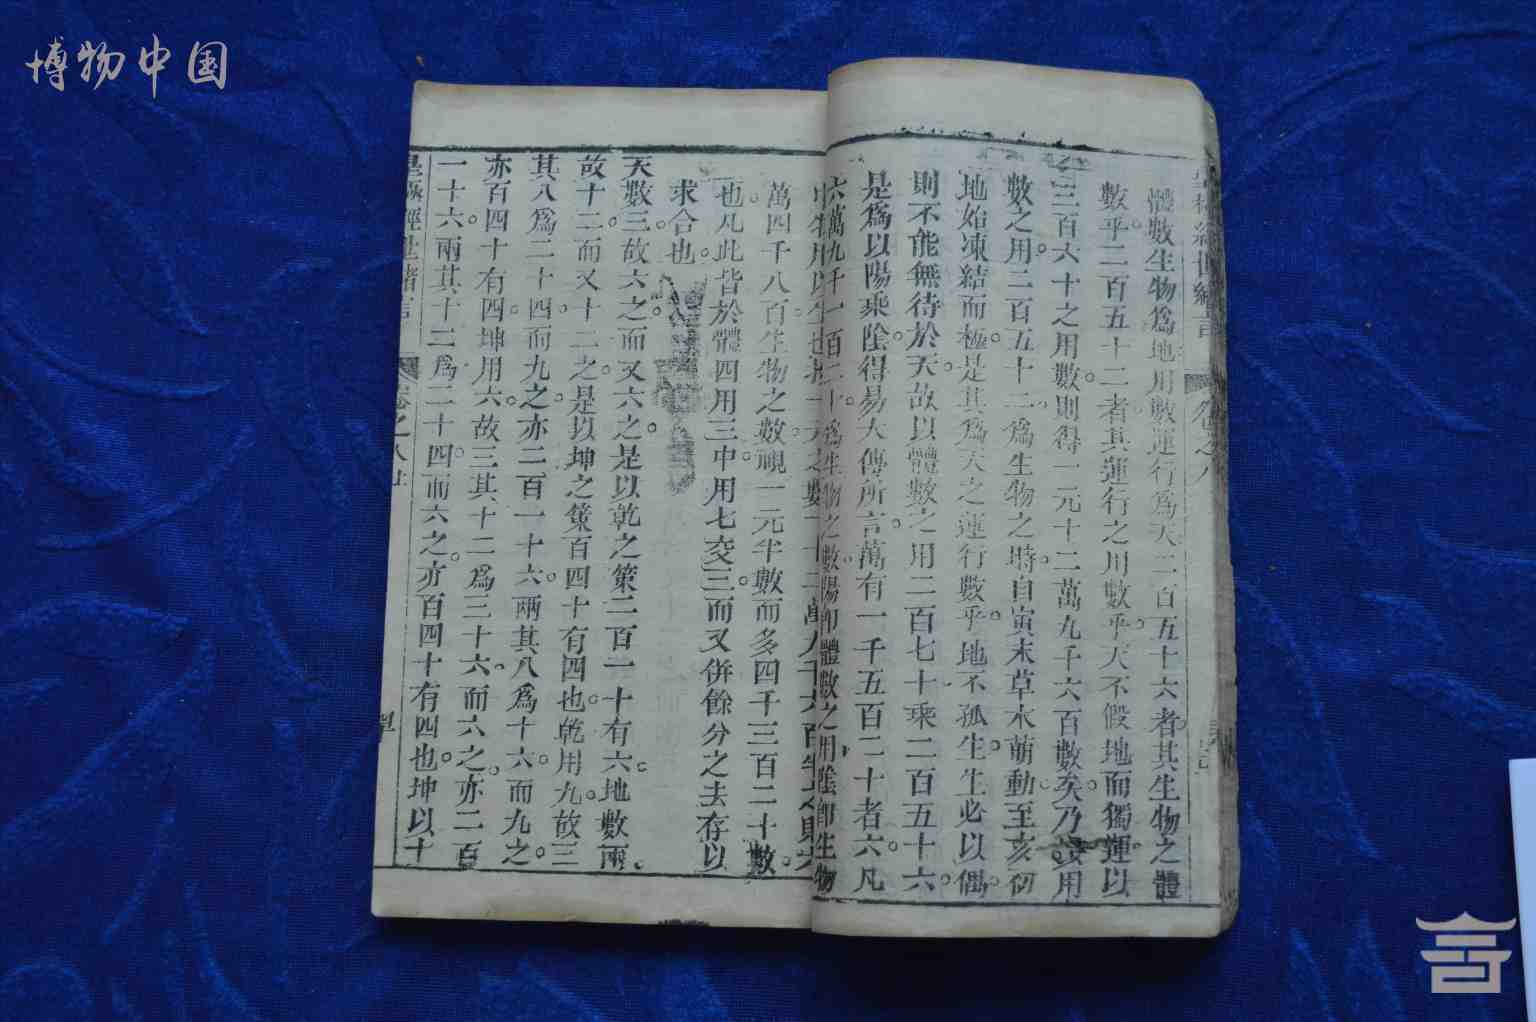 博物中国
體數生物爲地用數運行爲天二百五十六者其生物之體
數乎二百五十二者其運行之用數乎天不假地而獨運以
三百六十之用數則得一元十二萬九千六百數矣乃用
數之用二百五十二爲生物之時自寅末草木萌動至亥初
地始凍結而極是其爲天之運行數乎地不孤生生必以偶
則不能無待於天故以體數之用二百七十乘二百五十六
是爲以陽乘陰得易大傳所言萬有一千五百二十者六凡
六萬九千一百二十爲生物之數陽卽體數之用陰卽生物
萬四千八百生物之數視一元半數而多四千三百二十數
也凡此皆於體四用三中用七交三而又併餘分之去存以
求合也
天數三故六之而又六之是以乾之策二百一十有六地數兩
故十二而又十二之是以坤之策百四十有四也乾用九故三
其八爲二十四而九之亦二百一十六兩其八爲十六而九之
亦百四十有四坤用六故三其十二爲三十六而六之亦二百
一十六兩其十二爲二十四而六之亦百四十有四也坤以十
皇極經世緒言 卷之八上